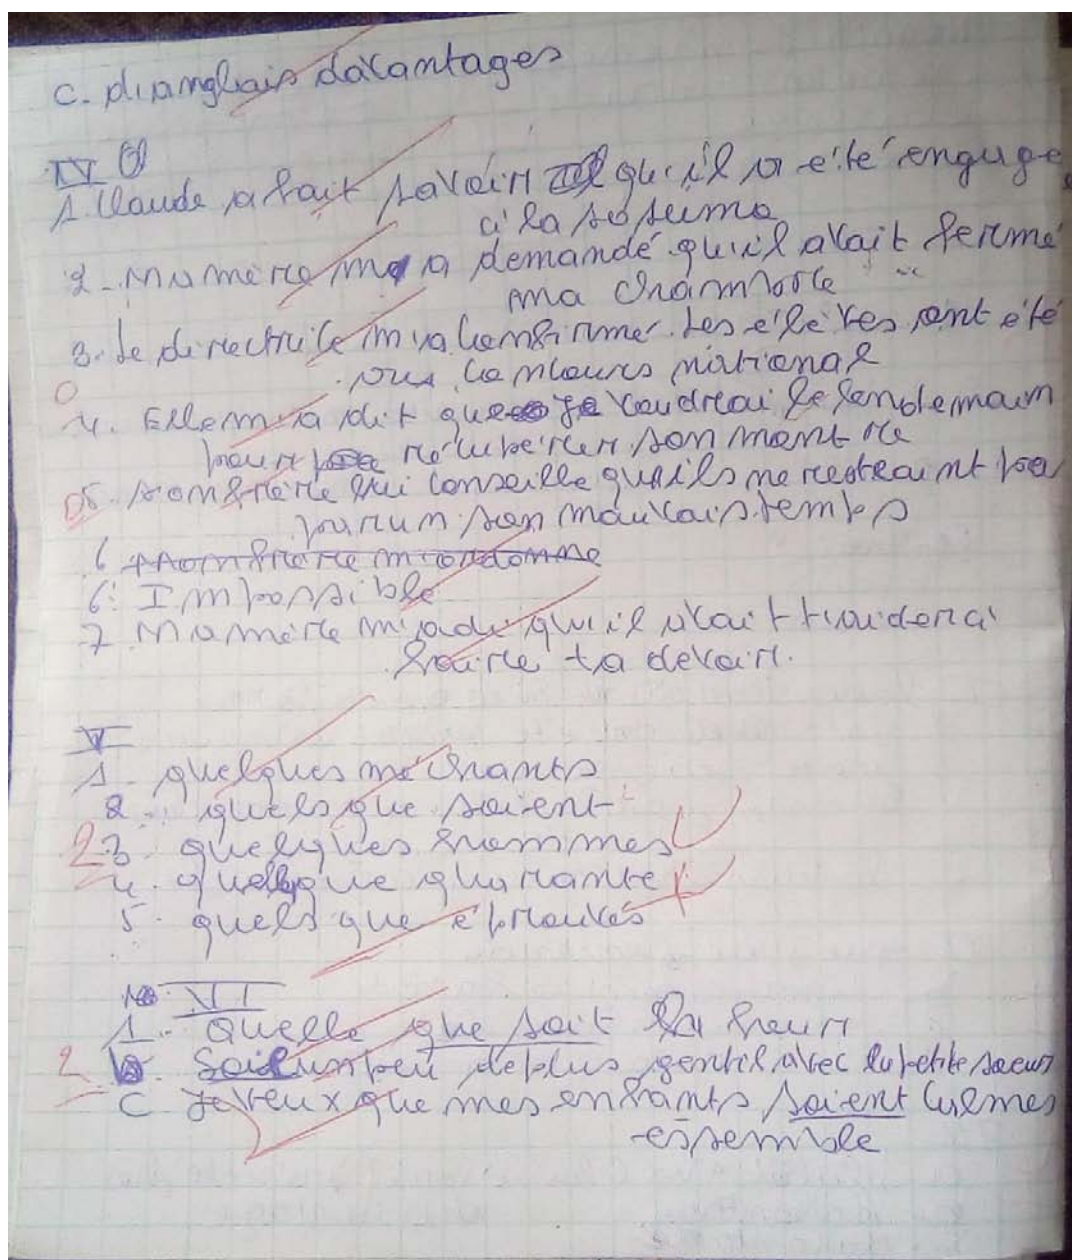 C. d'anglais davantages
IV
1. Claude a fait savoir qu'il a été engagé
à la sosuma
2 - Ma mère m'a demandé qu'il avait fermé
ma chambre
3. Le directrice m'a confirmé. Les élèves ont été
au concours national
0
4. Elle m'a dit que je voudrai le lendemain
pour récupérer son montre
0
5. son frère lui conseille qu'ils ne restraint pas
son mauvais temps
6 mon frère m'ordonne
6: Impossible
7. Ma mère m'a dit qu'il avait t'aidera
faire ta devoir.
V
1 - quelques méchants
2 - quels que soient
2
3 - quelques hommes
4. quelque quarante
5 - quels que éprouvés
VI
1. - Quelle que soit la heur
2
b. Soit un peu de plus gentil avec la petite soeur
C Je veux que mes enfants soient
essemble